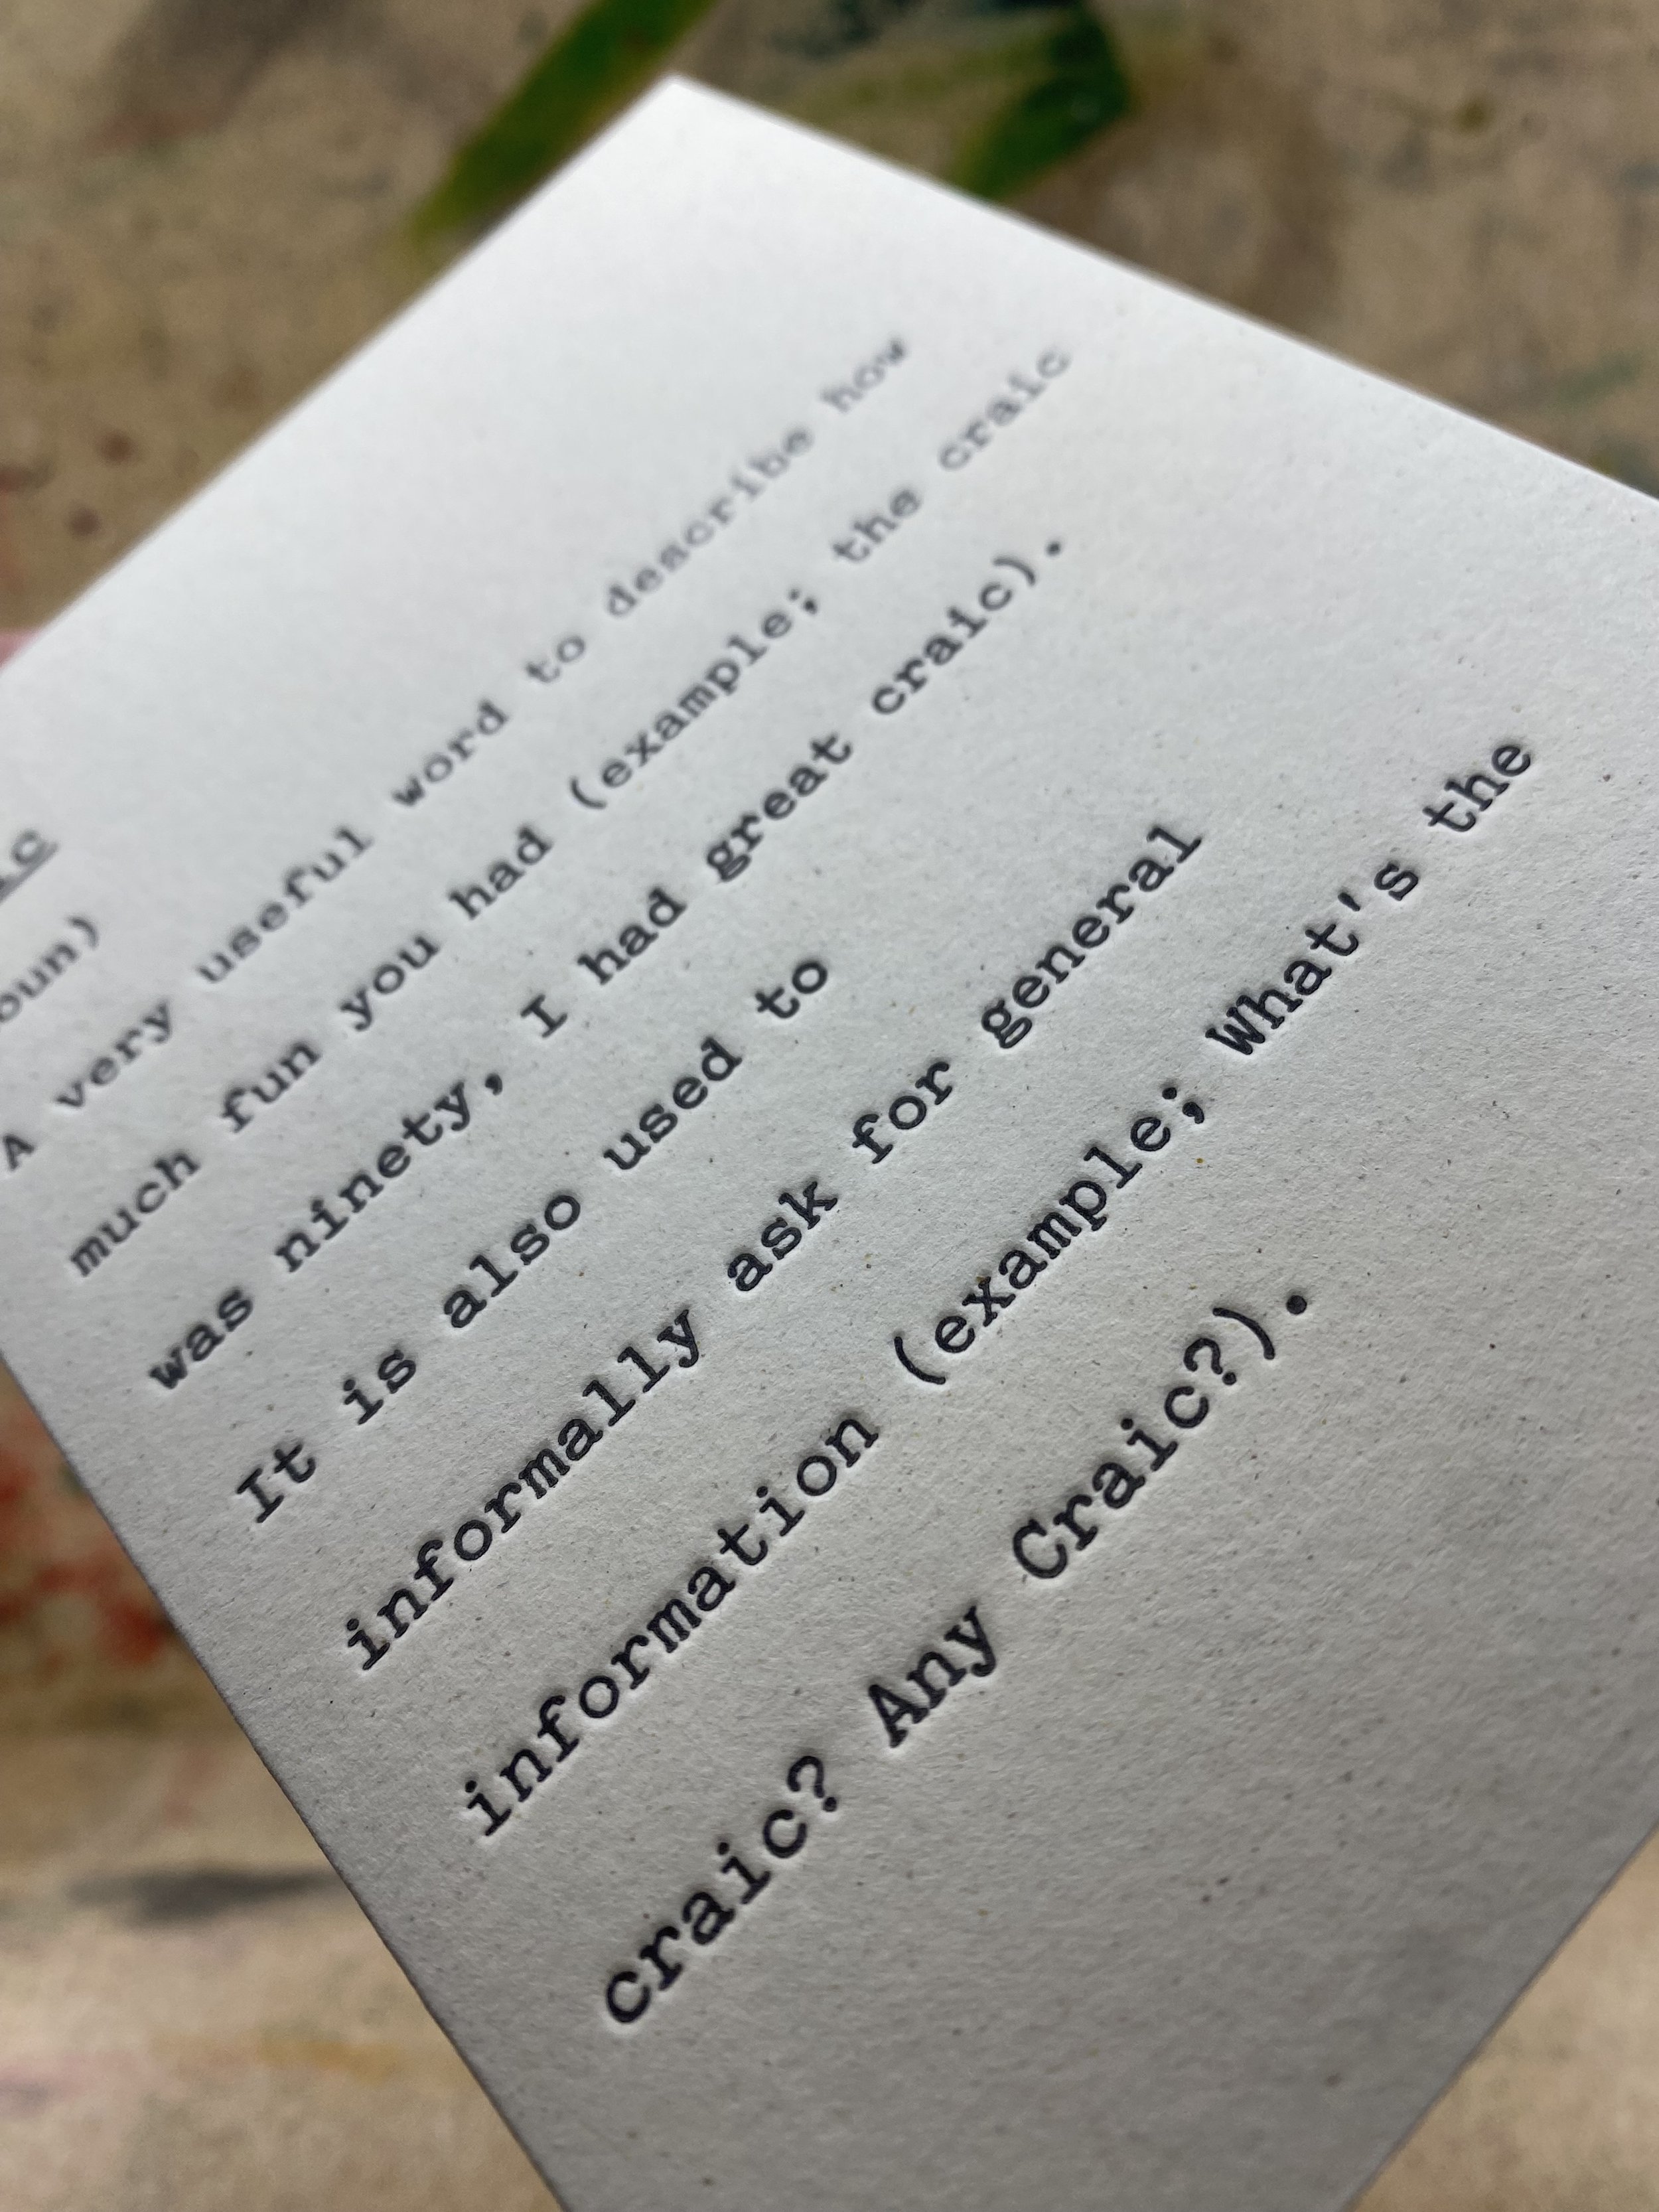 ic
oun)
A very useful word to describe how
much fun you had (example; the craic
was ninety, I had great craic).
It is also used to
informally ask for general
information (example; What's the
craic? Any Craic?).